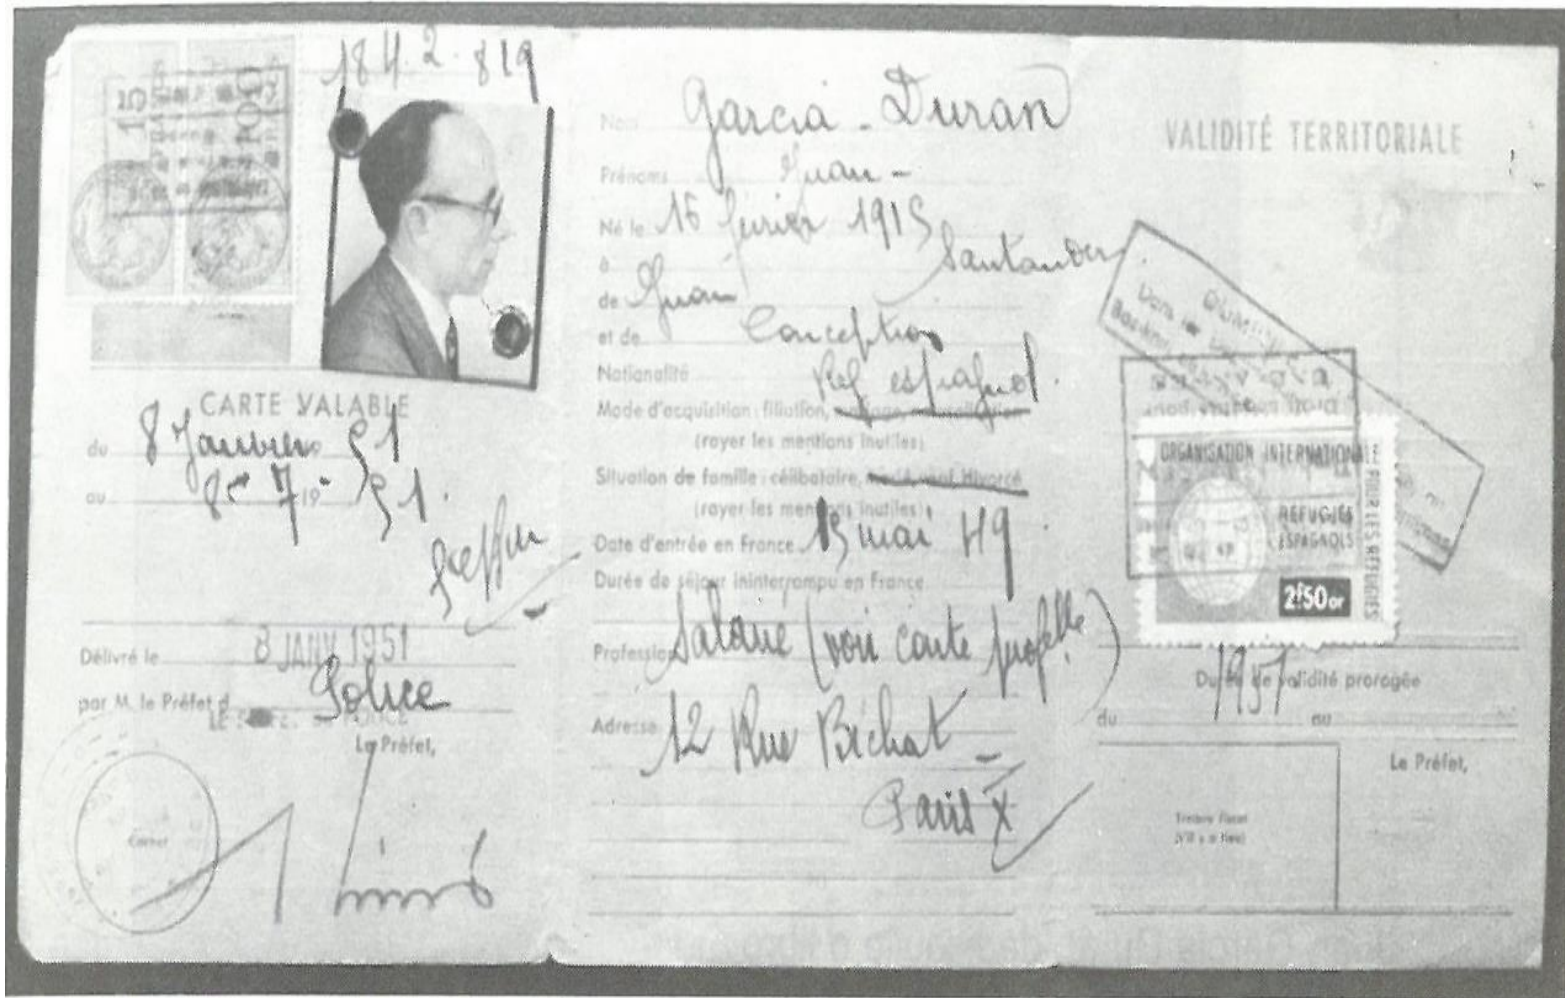 184.2.819
CARTE VALABLE
du 8 Janvier 51
au 8 - 7 - 19 51.
Délivré le 8 JANV 1951
par M. le Préfet d Police
Le Préfet,
Nom Garcia - Duran
Prénoms Juan -
Né le 16 février 1915
à Santander
de Juan
et de Conception
Nationalité Ref espagnol.
Mode d'acquisition : filiation, mariage, naturalisation
(rayer les mentions inutiles)
Situation de famille : célibataire, marié, veuf, divorcé
(rayer les mentions inutiles)
Date d'entrée en France 15 mai 49
Durée de séjour ininterrompu en France
Profession Salarié (voir carte profelle)
Adresse 12 Rue Bichat -
Paris X
VALIDITÉ TERRITORIALE
ORGANISATION INTERNATIONALE
POUR LES REFUGIES
REFUGIES
ESPAGNOLS
2F50 or
1951
Durée de validité prorogée
du au
Le Préfet,
Timbre fiscal
(s'il y a lieu)